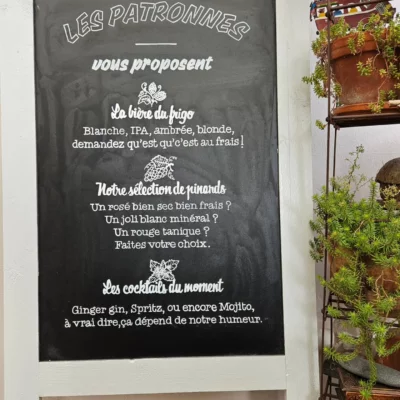 LES PATRONNES
vous proposent
La bière du frigo
Blanche, IPA, ambrée, blonde,
demandez qu'est qu'c'est au frais !
Notre sélection de pinards
Un rosé bien sec bien frais ?
Un joli blanc minéral ?
Un rouge tanique ?
Faites votre choix.
Les cocktails du moment
Ginger gin, Spritz, ou encore Mojito,
à vrai dire,ça dépend de notre humeur.